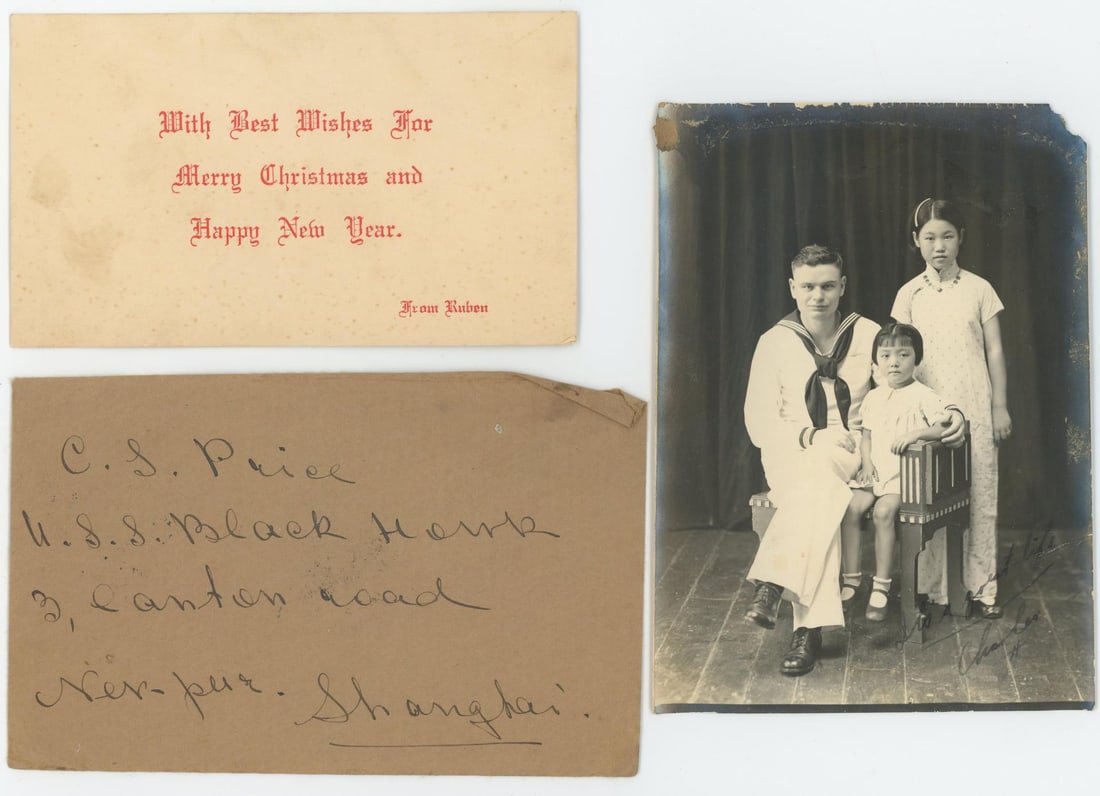 With Best Wishes For
Merry Christmas and
Happy New Year.
From Ruben
C. S. Price
U.S.S. Black Hawk
3, Canton road
Shanghai.
Charles